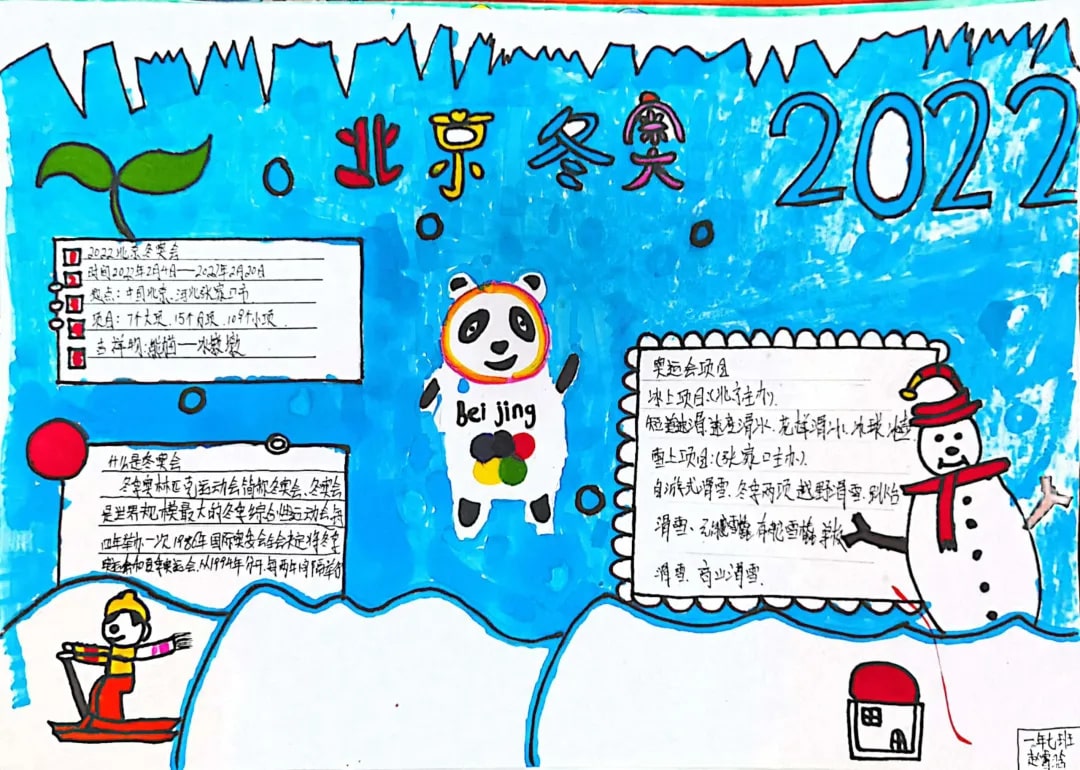 北京冬奥 2022
2022北京冬奥会
时间2022年2月4日—2022年2月20日
地点：中国北京、河北张家口市
项目：7个大项、15个分项、109个小项、
吉祥物：熊猫—冰墩墩
Bei jing
什么是冬奥会
冬季奥林匹克运动会简称冬奥会、冬奥会
是世界规模最大的冬季综合性运动会、每
四年举办一次1986年国际奥委会全会决定将冬季
奥运会和夏季奥运会、从1994年分开、每两年间隔举行
奥运会项目
冰上项目：（北京主办）、
短道速滑、速度滑冰、花样滑冰、冰球、冰壶
雪上项目：（张家口主办）、
自由式滑雪、冬季两项、越野滑雪、跳台
滑雪、无舵雪橇、有舵雪橇、单板
滑雪、高山滑雪、
一年七班